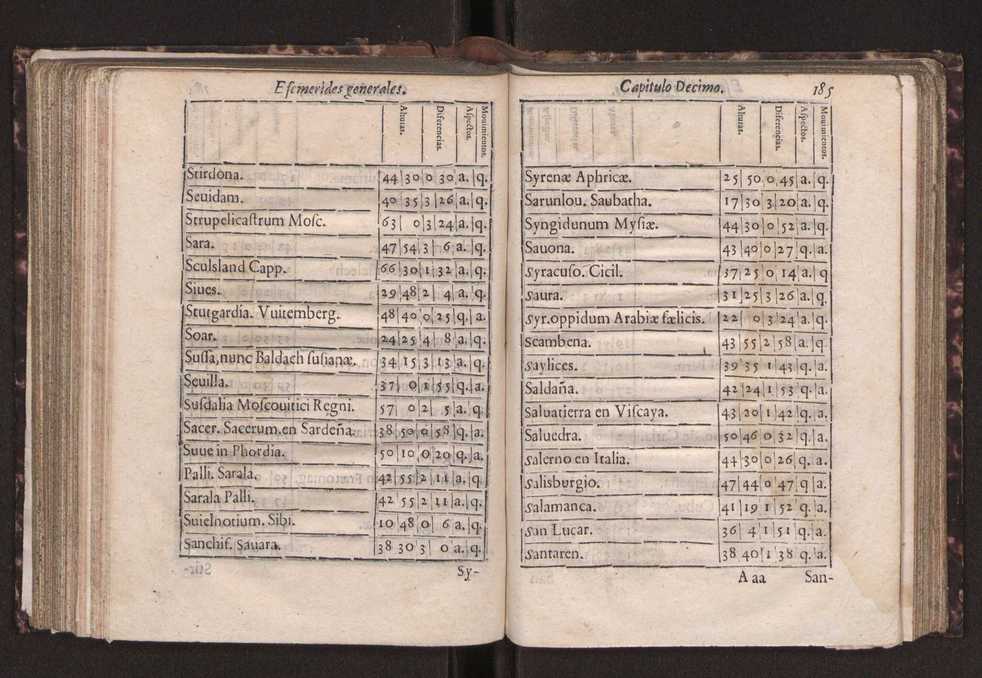 Efemerides generales.
Alturas. Diferencias. Aspectos. Mouimientos.
Stirdona. 44 30 0 30 a. q.
Seuidam. 40 35 3 26 a. q.
Strupelicastrum Mosc. 63 0 3 24 a. q.
Sara. 47 54 3 6 a. q.
Sculsland Capp. 66 30 1 32 a. q.
Siues. 29 48 2 4 a. q.
Sturgardia. Vuitemberg. 48 40 0 25 q. a.
Soar. 24 25 4 8 a. q.
Sussa, nunc Baldach susianæ. 34 15 3 13 a. q.
Seuilla. 37 0 1 55 q. a.
Susdalia Moscouitici Regni. 57 0 2 5 a. q.
Sacer. Sacerum. en Sardeña. 38 50 0 58 q. a.
Suue in Phordia. 50 10 0 20 q. a.
Palli. Sarala. 42 55 2 11 a. q.
Sarala Palli. 42 55 2 11 a. q.
Suielnotium. Sibi. 10 48 0 6 a. q.
Sanchif. Sauara. 38 30 3 0 a. q.
Sy-
Capitulo Decimo. 185
Alturas. Diferencias. Aspectos. Mouimientos.
Syrenæ Aphricæ. 25 50 0 45 a. q.
Sarunlou. Saubatha. 17 30 3 20 a. q.
Syngidunum Mysiæ. 44 30 0 52 a. q.
Sauona. 43 40 0 27 q. a.
Syracuso. Cicil. 37 25 0 14 a. q
Saura. 31 25 3 26 a. q.
Syr. oppidum Arabiæ fælicis. 22 0 3 24 a. q.
Scambena. 43 55 2 58 a. q.
Saylices. 39 35 1 43 q. a.
Saldaña. 42 24 1 53 q. a.
Saluatierra en Viscaya. 43 20 1 42 q. a.
Saluedra. 50 46 0 32 q. a.
Salerno en Italia. 44 30 0 26 q. a.
Salisburgio. 47 44 0 47 q a.
Salamanca. 41 19 1 52 q. a.
San Lucar. 36 4 1 51 q. a.
Santaren. 38 40 1 38 q. a.
A aa San-